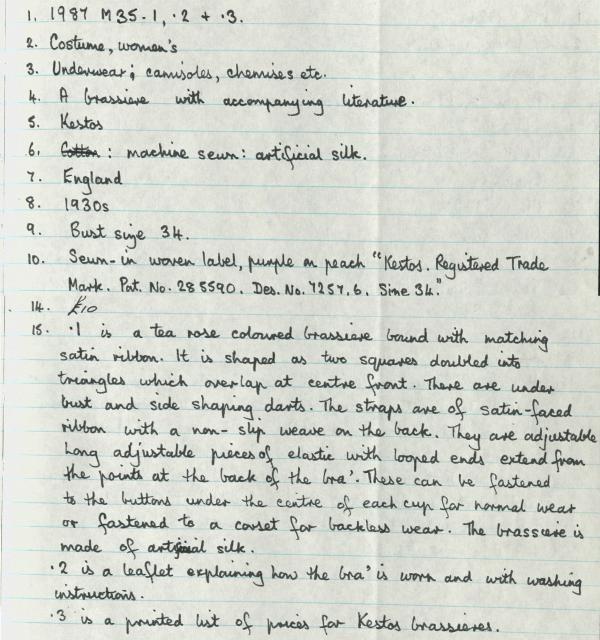 1. 1987 M35.1, .2 + .3.
2. Costume, women's
3. Underwear; camisoles, chemises etc.
4. A brassiere with accompanying literature.
5. Kestos
6. Cotton : machine sewn: artificial silk.
7. England
8. 1930s
9. Bust size 34.
10. Sewn-in woven label, purple on peach "Kestos. Registered Trade
Mark. Pat. No. 285590. Des. No. 7257.6. Sime 34."
14. £10
15. .1 is a tea rose coloured brassiere bound with matching
satin ribbon. It is shaped as two squares doubled into
triangles which overlap at centre front. There are under
bust and side shaping darts. The straps are of satin-faced
ribbon with a non-slip weave on the back. They are adjustable
Long adjustable pieces of elastic with looped ends extend from
the points at the back of the bra'. These can be fastened
to the buttons under the centre of each cup for normal wear
or fastened to a corset for backless wear. The brassiere is
made of artificial silk.
.2 is a leaflet explaining how the bra' is worn and with washing
instructions.
.3 is a printed list of prices for Kestos brassieres.